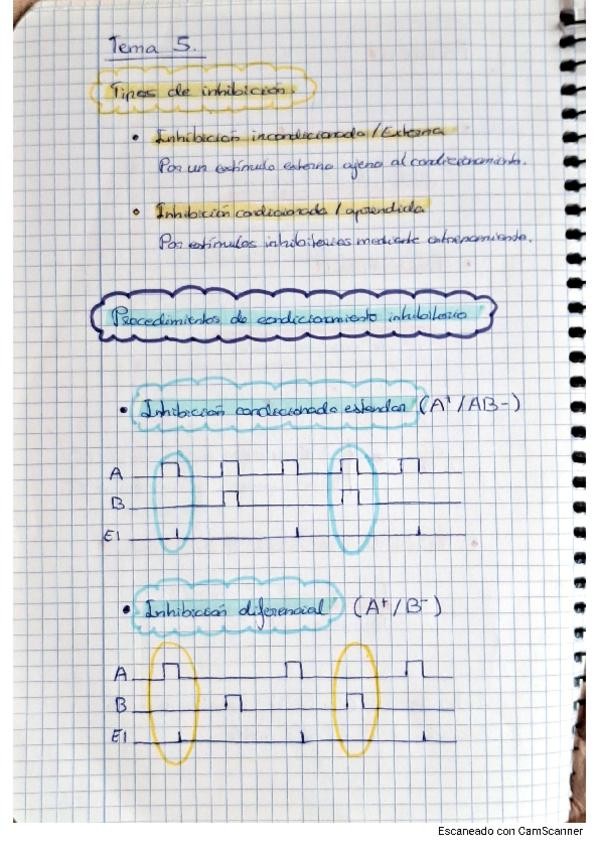 Tema 5.
Tipos de inhibición.
• Inhibición incondicionada / Externa
Por un estímulo externo ajeno al condicionamiento.
• Inhibición condicionada / aprendida
Por estímulos inhibitorios mediante entrenamiento.
Procedimientos de condicionamiento inhibitorio
• Inhibición condicionada estandar (A⁺/AB-)
A
B
EI
• Inhibición diferencial (A⁺/B⁻)
A
B
EI
Escaneado con CamScanner